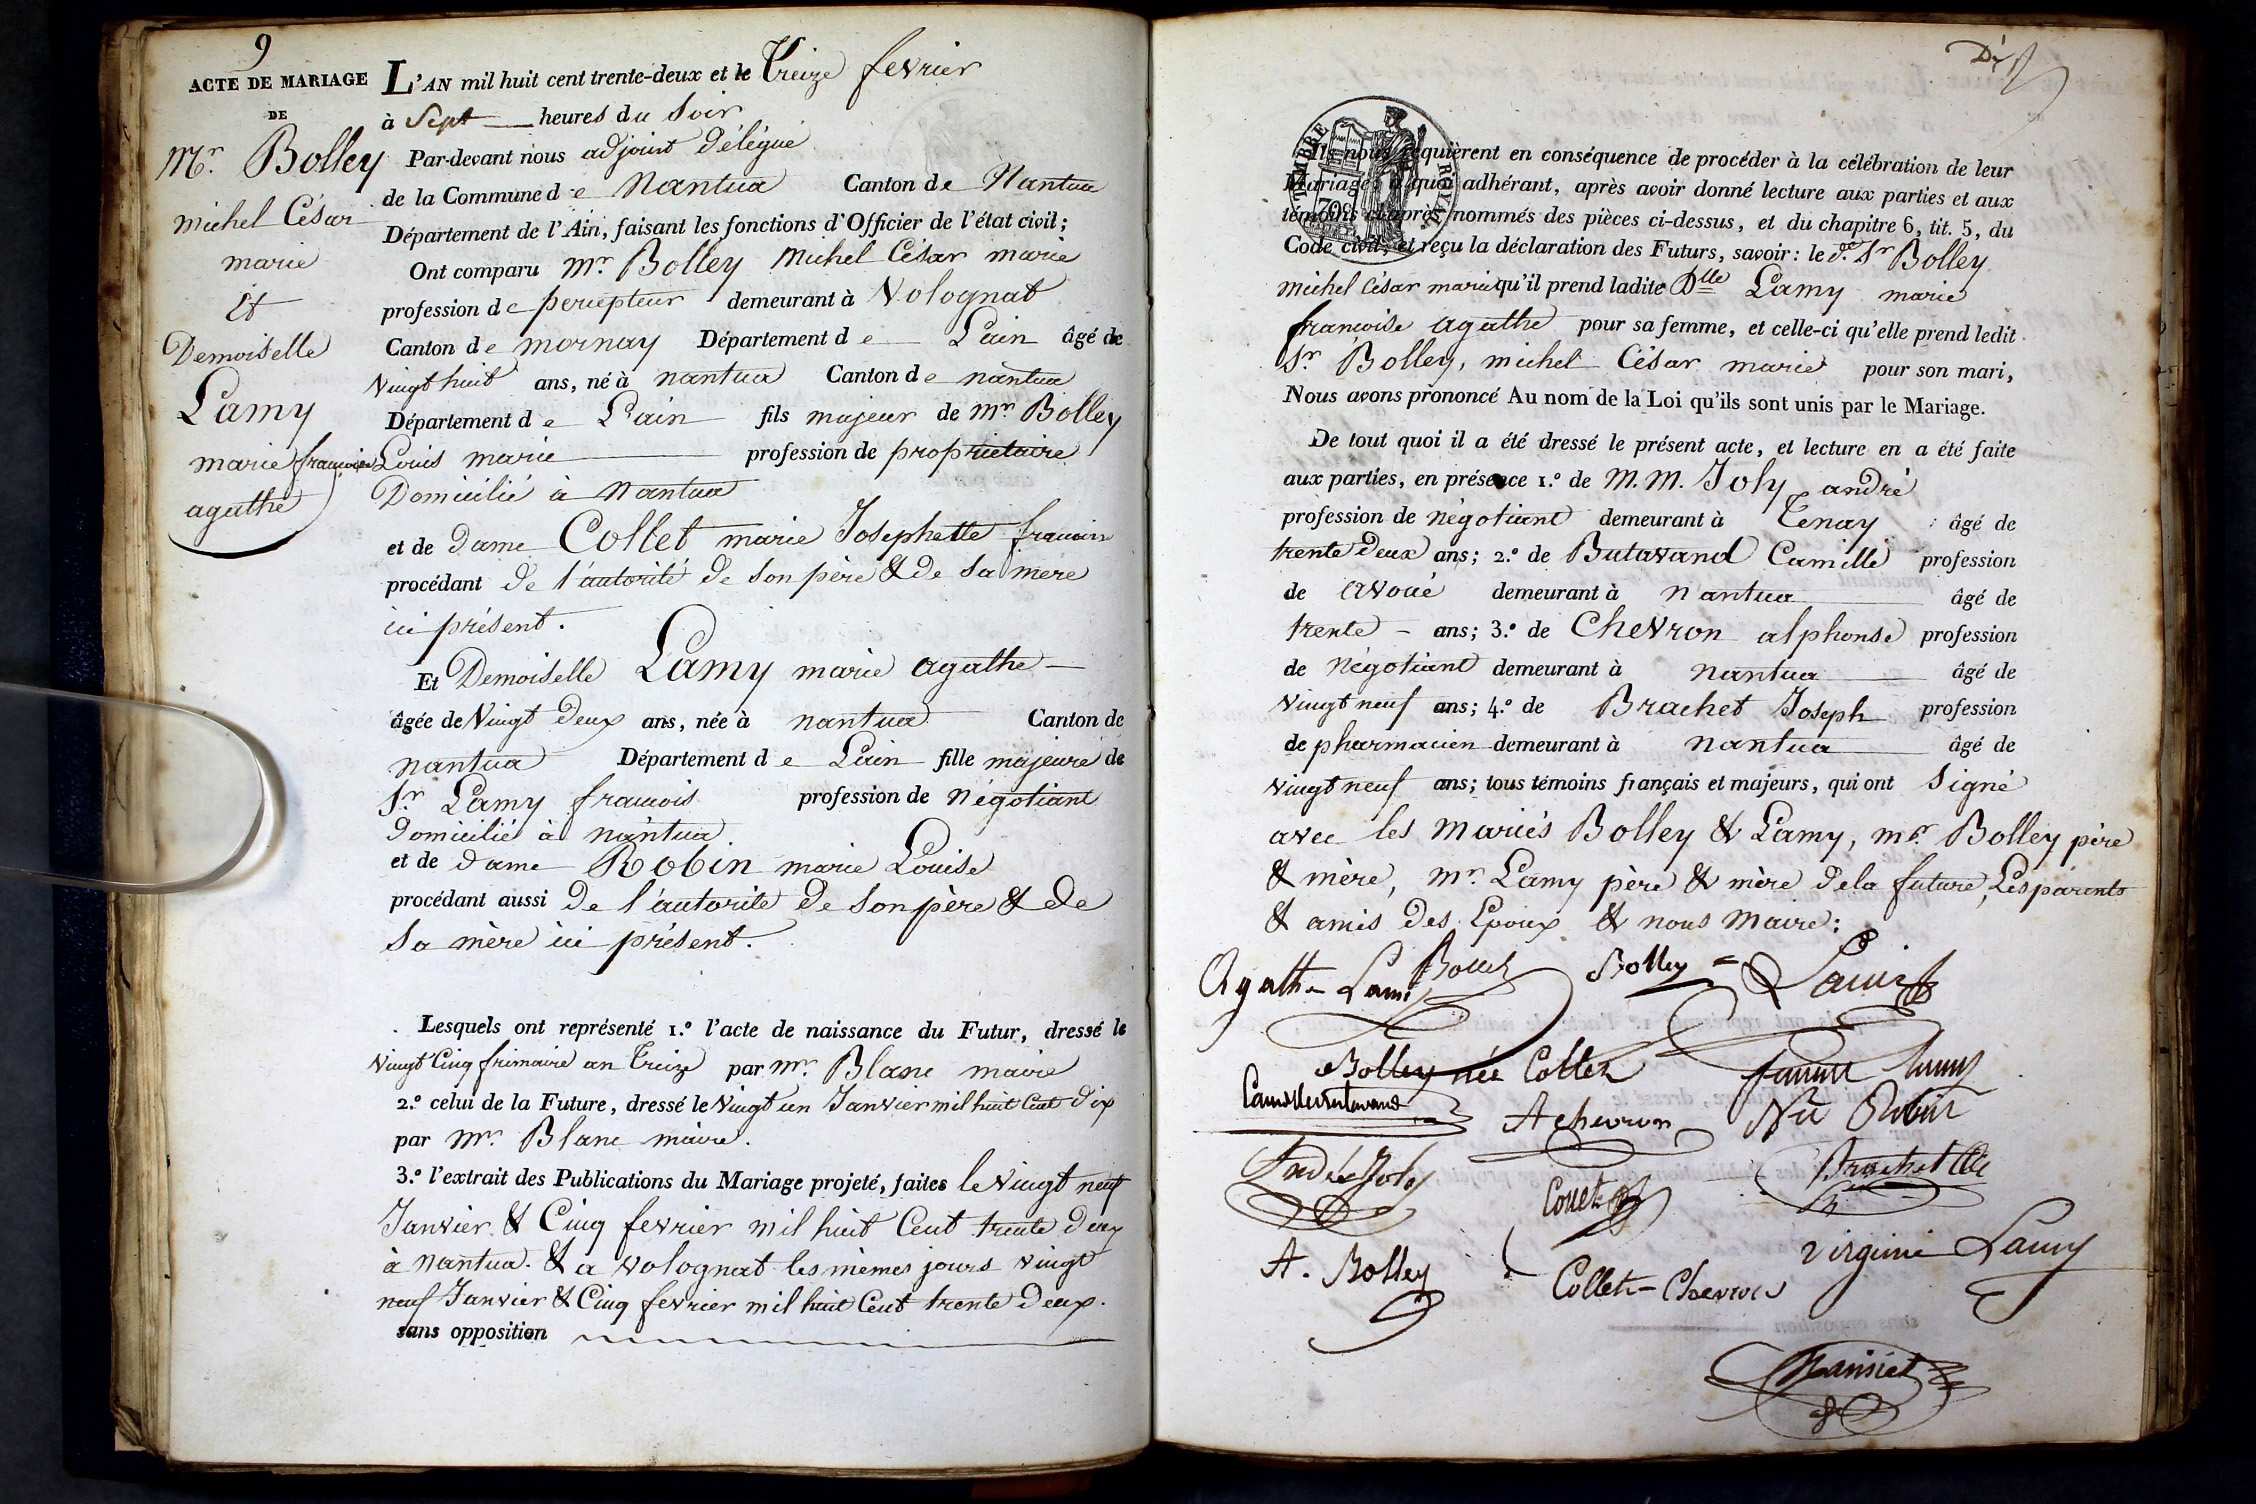 9
ACTE DE MARIAGE
DE
Mr. Bolley
michel César
marie
Et
Demoiselle
Lamy
marie françoise
agathe
L'AN mil huit cent trente-deux et le Treize fevrier
à Sept heures du Soir
Par-devant nous adjoint Délégué
de la Commune de Nantua Canton de Nantua
Département de l'Ain, faisant les fonctions d'Officier de l'état civil;
Ont comparu mr. Bolley Michel César marie
profession de percepteur demeurant à Volognat
Canton de mornay Département de L'ain âgé de
Vingt huit ans, né à nantua Canton de nantua
Département de L'ain fils majeur de mr Bolley
Louis marie profession de propriétaire
Domicilié à Nantua
et de Dame Collet marie Josephette
procédant de l'autorité de Son père & de Sa mere
ici présent.
Et Demoiselle Lamy marie agathe
âgée de Vingt Deux ans, née à nantua Canton de
nantua Département de L'ain fille majeure de
Sr. Lamy françois profession de Négotiant
Domicilié à nantua
et de dame Robin marie Louise
procédant aussi de l'autorité de Son père & de
Sa mère ici présent.
Lesquels ont représenté 1.º l'acte de naissance du Futur, dressé le
Vingt Cinq frimaire an Treize par mr. Blanc maire
2.º celui de la Future, dressé le Vingt un Janvier mil huit Cent dix
par mr. Blanc maire.
3.º l'extrait des Publications du Mariage projeté, faites le Vingt neuf
Janvier & Cinq fevrier mil huit Cent trente deux
à nantua. & a Volognat les mèmes jours vingt
neuf Janvier & Cinq fevrier mil huit Cent trente Deux.
sans opposition
TIMBRE ROYAL
Ils nous requièrent en conséquence de procéder à la célébration de leur
Mariage: à quoi adhérant, après avoir donné lecture aux parties et aux
témoins ci-après nommés des pièces ci-dessus, et du chapitre 6, tit. 5, du
Code civil, et reçu la déclaration des Futurs, savoir: le dt. Sr Bolley
michel César marie qu'il prend ladite Dlle Lamy marie
françoise agathe pour sa femme, et celle-ci qu'elle prend ledit
Sr. Bolley, michel César marie pour son mari,
Nous avons prononcé Au nom de la Loi qu'ils sont unis par le Mariage.
De tout quoi il a été dressé le présent acte, et lecture en a été faite
aux parties, en présence 1.º de M.M. Joly andré
profession de négotiant demeurant à Tenay âgé de
trente Deux ans; 2.º de Butavand Camille profession
de avoué demeurant à nantua âgé de
trente ans; 3.º de Chevron alphonse profession
de négotiant demeurant à nantua âgé de
Vingt neuf ans; 4.º de Brachet Joseph profession
de pharmacien demeurant à nantua âgé de
Vingt neuf ans; tous témoins français et majeurs, qui ont Signé
avec les mariés Bolley & Lamy, mr. Bolley père
& mère, mr. Lamy père & mère dela future, Les parents
& amis des Epoux & nous Maire:
Agathe Lami Bolley Bolley
Bolley née Collet
Camille Butavand A chevron Née Robin
André Joly Collet Brachet
A. Bolley Collet-Chevron Virginie Lamy